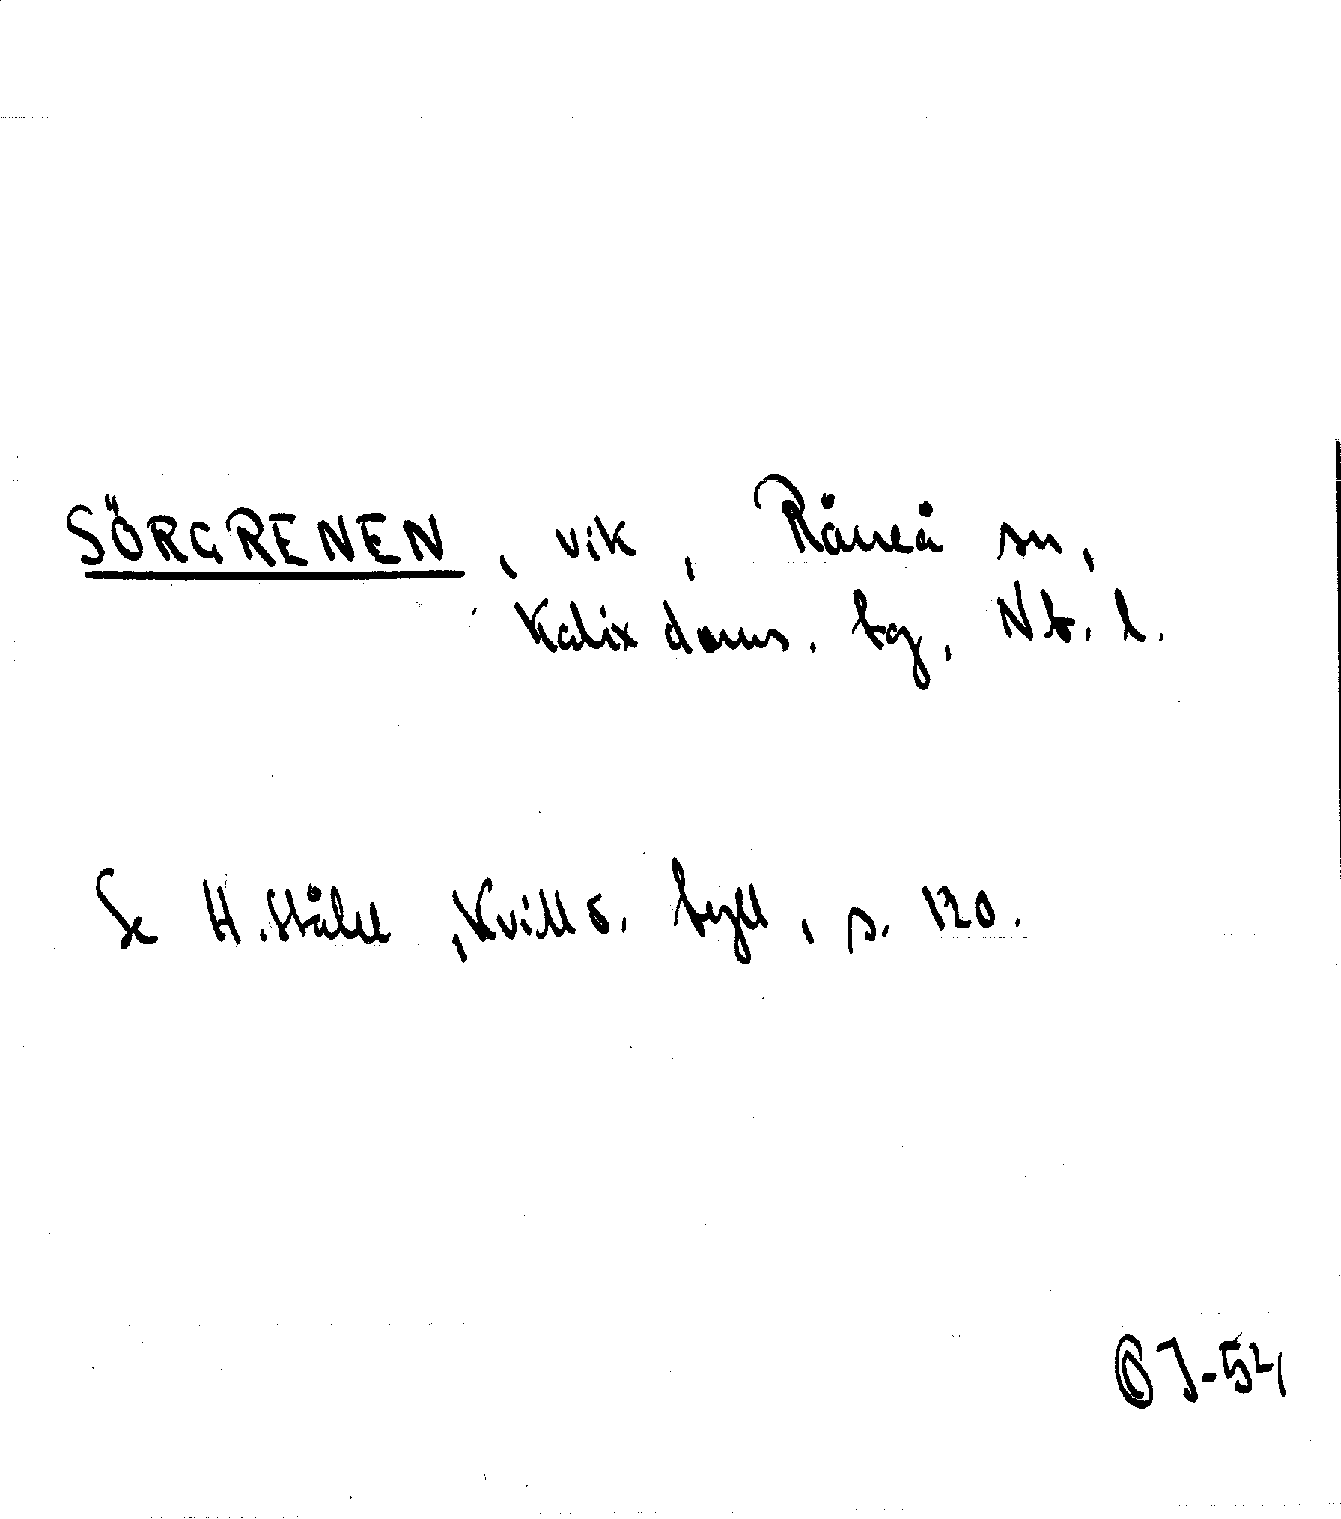 SÖRGRENEN, vik, Råneå sn,
Kalix doms. tg, Nb. l.
Se H. Ståhl, Kvill o. tyll, s. 120.
OJ-54